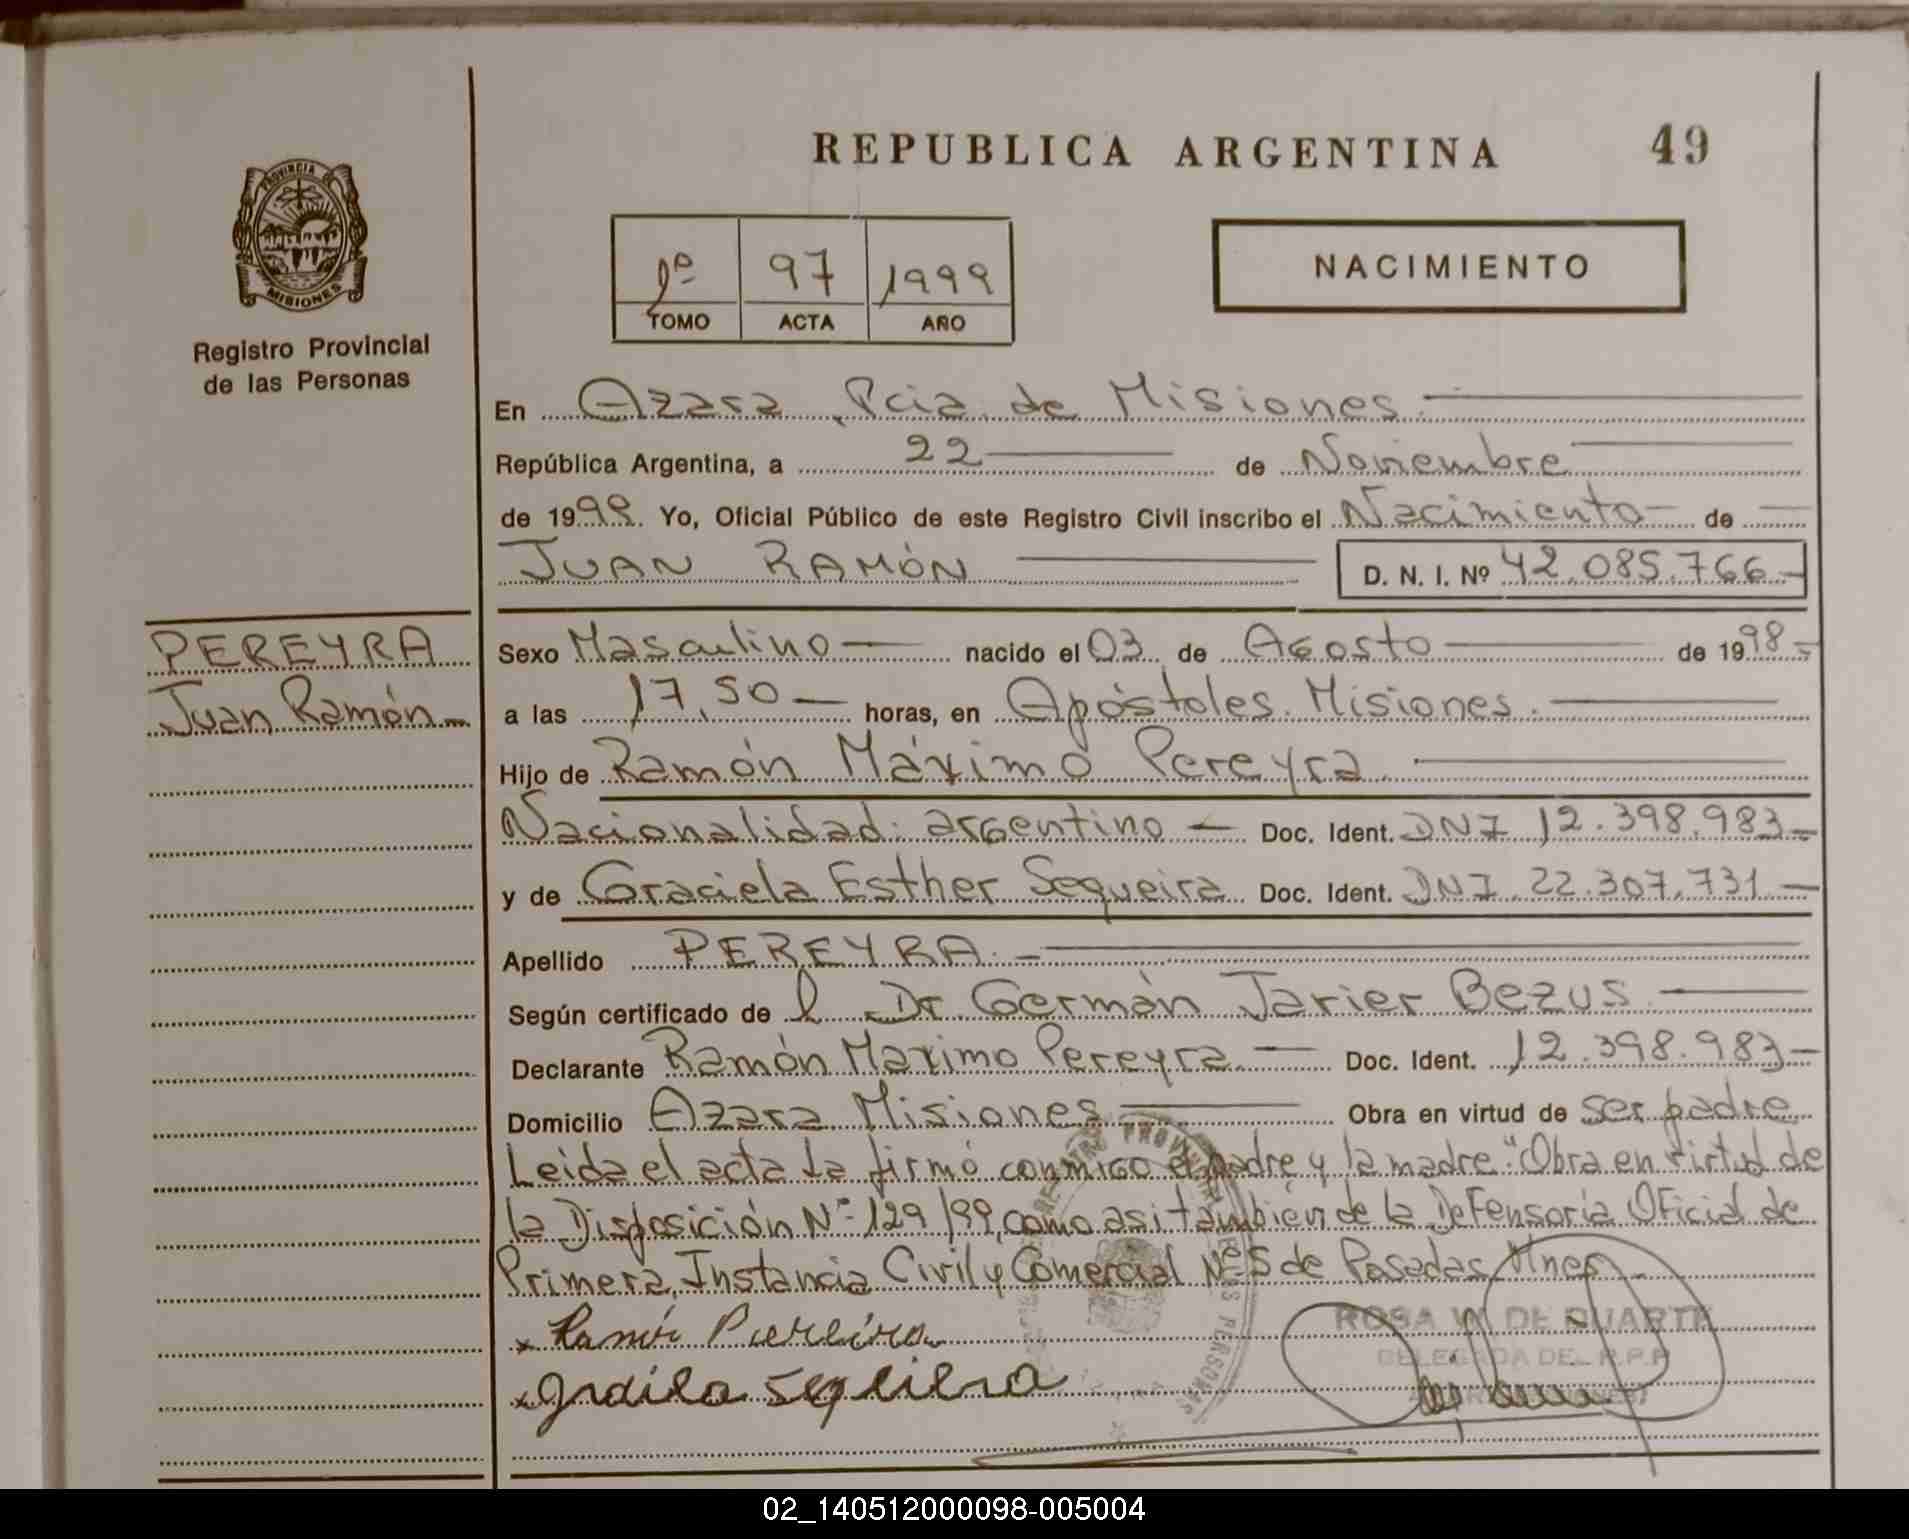 REPUBLICA ARGENTINA 49
PROVINCIA DE
MISIONES
Registro Provincial
de las Personas
1º 97 1999
TOMO ACTA AÑO
NACIMIENTO
En Azara, Pcia. de Misiones.
República Argentina, a 22 de Noviembre
de 1999. Yo, Oficial Público de este Registro Civil inscribo el Nacimiento de
JUAN RAMÓN D. N. I. Nº 42.085.766
PEREYRA
Juan Ramón
Sexo Masculino nacido el 03 de Agosto de 1998.
a las 17,50 horas, en Apóstoles. Misiones.
Hijo de Ramón Máximo Pereyra
Nacionalidad: argentino Doc. Ident. DNI 12.398.983
y de Graciela Esther Sequeira Doc. Ident. DNI 22.307.731
Apellido PEREYRA.
Según certificado de l Dr. Germán Javier Bezus.
Declarante Ramón Maximo Pereyra Doc. Ident. 12.398.983
Domicilio Azara Misiones Obra en virtud de ser padre
Leida el acta la firmó conmigo el padre y la madre." Obra en virtud de
la Disposición Nº 129/99, como asi también de la Defensoría Oficial de
Primera Instancia Civil y Comercial Nº 5 de Posadas Mnes
x Ramón Pereira
x Graciela Sequeira
ROSA DE DUARTE
DELEGADA DEL R.P.P
02_140512000098-005004